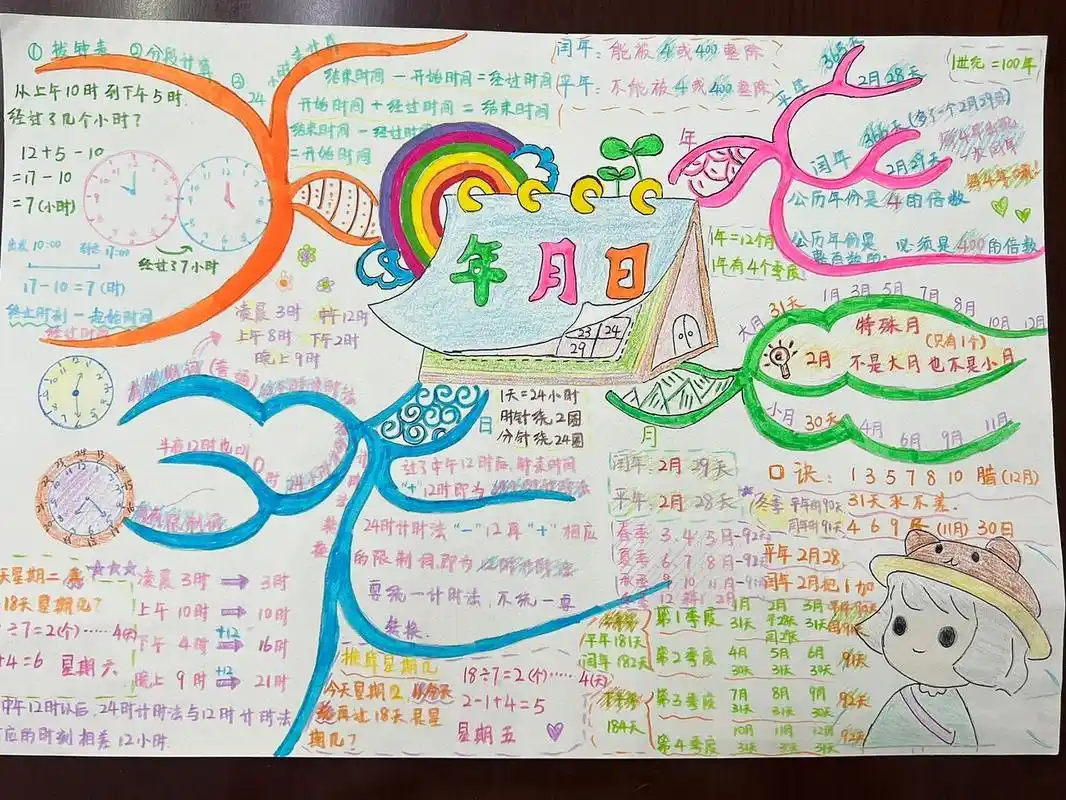 ①拨钟表 ②分段计算 ③24小时差计算
从上午10时到下午5时
经过了几个小时?
12+5-10
=17-10
=7(小时)
10:00
17:00
经过了7小时
17-10=7(时)
终止时刻-起始时刻
=经过时间
结束时间-开始时间=经过时间
开始时间+经过时间=结束时间
结束时间-经过时间
=开始时间
闰年:能被4或400整除
平年:不能被4或400整除
年月日
23 24
29
年
平年
365天
2月28天
闰年
366天(多了一个2月29日)
2月29天
公历年份是4的倍数
公历年份是
整百数的 必须是400的倍数
1世纪=100年
1年=12个月
1年有4个季度
月
大月 31天
1月 3月 5月 7月 8月 10月 12月
特殊月
(只有1个)
2月 不是大月也不是小月
小月 30天
4月 6月 9月 11月
闰年:2月29天
平年:2月28天
口诀:1 3 5 7 8 10 腊(12月)
31天永不差.
4 6 9 冬(11月)30日
平年2月28
闰年2月把1加
冬季 平年的90天
闰年的91天
春季 3.4.5月-92天
夏季 6.7.8月-92天
秋季 9.10.11月-91天
冬季 12.1.2月
平年181天
闰年182天
184天
第1季度 1月 2月 3月
31天 平28天 31天
闰29天
第2季度 4月 5月 6月 91天
30天 31天 30天
第3季度 7月 8月 9月 92天
31天 31天 30天
第4季度 10月 11月 12月 92天
31天 30天 31天
日
1天=24小时
时针绕2圈
分针绕24圈
凌晨3时 中午12时
上午8时 下午2时
晚上9时
半夜12时也叫0时
过了中午12时后,
"+"12时即为
24时计时法"-"12再"+"相应
的限制词即为
要统一计时法,不统一要
转换.
凌晨3时 → 3时
上午10时 → 10时
下午4时 +12→ 16时
晚上9时 +12→ 21时
中午12时以后,24时计时法与12时计时法
相差12小时.
天星期二
18天星期几?
÷7=2(个)……4(天)
+4=6 星期六
推算星期几
再过18天是星
期几?
18÷7=2(个)……4(天)
2-1+4=5
星期五